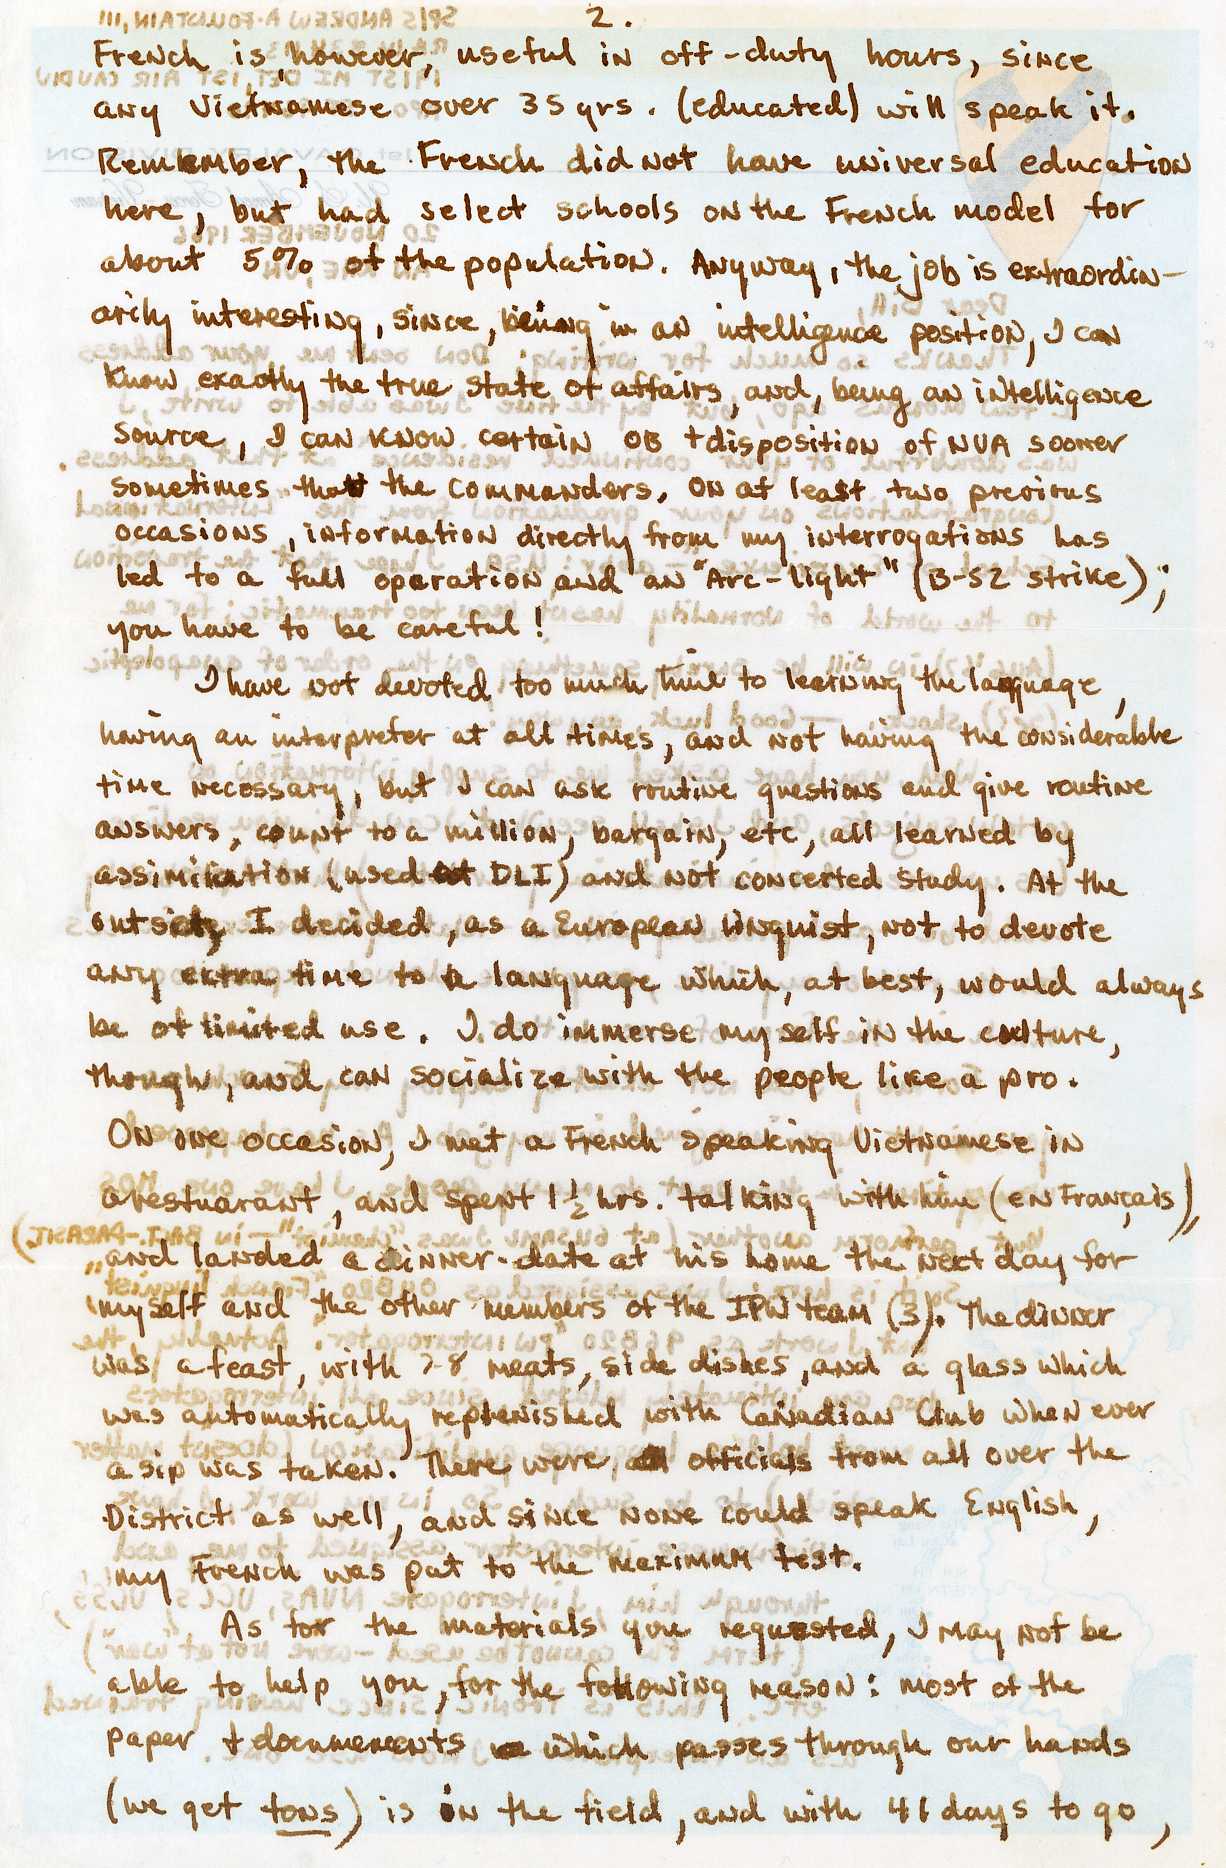 2.
French is, however, useful in off-duty hours, since
any Vietnamese over 35 yrs. (educated) will speak it.
Remember, the French did not have universal education
here, but had select schools on the French model for
about 5% of the population. Anyway, the job is extraordin-
arily interesting, since, being in an intelligence position, I can
know exactly the true state of affairs, and, being an intelligence
source, I can know certain OB + disposition of NVA sooner
sometimes that the commanders. On at least two previous
occasions, information directly from my interrogations has
led to a full operation and an "Arc-light" (B-52 strike);
you have to be careful!
I have not devoted too much time to learning the language,
having an interpreter at all times, and not having the considerable
time necessary, but I can ask routine questions and give routine
answers, count to a million, bargain, etc, all learned by
assimilation (used at DLI) and not concerted study. At the
outset, I decided, as a European linguist, not to devote
any extra time to a language which, at best, would always
be of limited use. I do immerse myself in the culture,
though, and can socialize with the people like a pro.
On one occasion, I met a French speaking Vietnamese in
a restuarant, and spent 1½ hrs. talking with him (en Français),
and landed a dinner-date at his home the next day for
myself and the other members of the IPW team (3). The dinner
was a feast, with 7-8 meats, side dishes, and a glass which
was automatically replenished with Canadian Club when ever
a sip was taken. There were officials from all over the
District as well, and since none could speak English,
my French was put to the maximum test.
As for the materials you requested, I may not be
able to help you, for the following reason: most of the
paper + documents which passes through our hands
(we get tons) is in the field, and with 41 days to go,